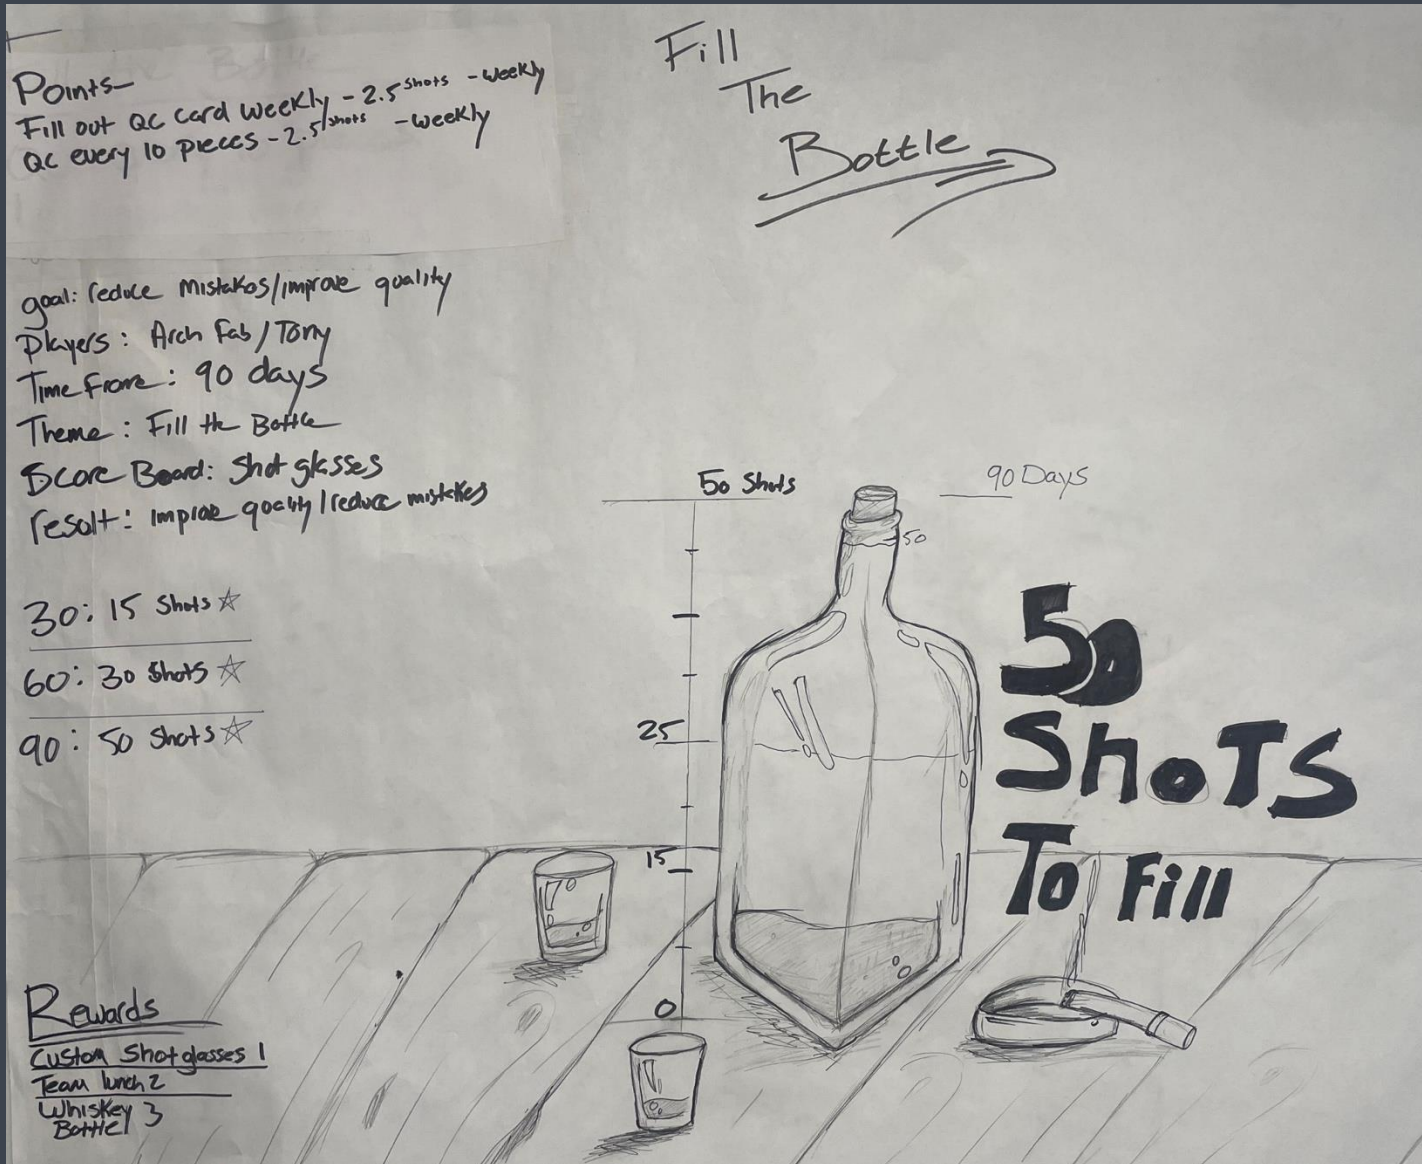 Fill
The
Bottle
Points-
Fill out QC card weekly - 2.5 shots - weekly
QC every 10 pieces - 2.5 shots - weekly
goal: reduce mistakes/improve quality
Players: Arch Fab/Tony
Time Frame: 90 days
Theme: Fill the Bottle
Score Board: Shot glasses
result: improve quality/reduce mistakes
30: 15 Shots
60: 30 Shots
90: 50 Shots
50 Shots
90 Days
50
25
15
0
50
ShoTS
To Fill
Rewards
Custom Shotglasses 1
Team lunch 2
Whiskey 3
Bottle